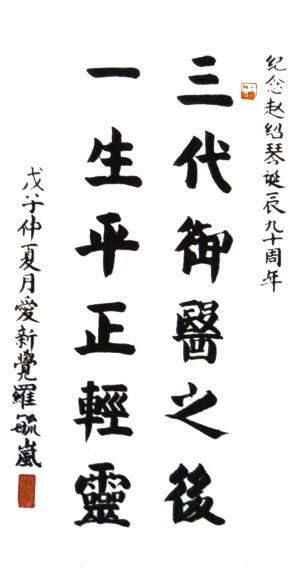 纪念赵绍琴诞辰九十周年
三代御醫之後
一生平正輕靈
戊子仲夏月愛新覺羅毓嵐